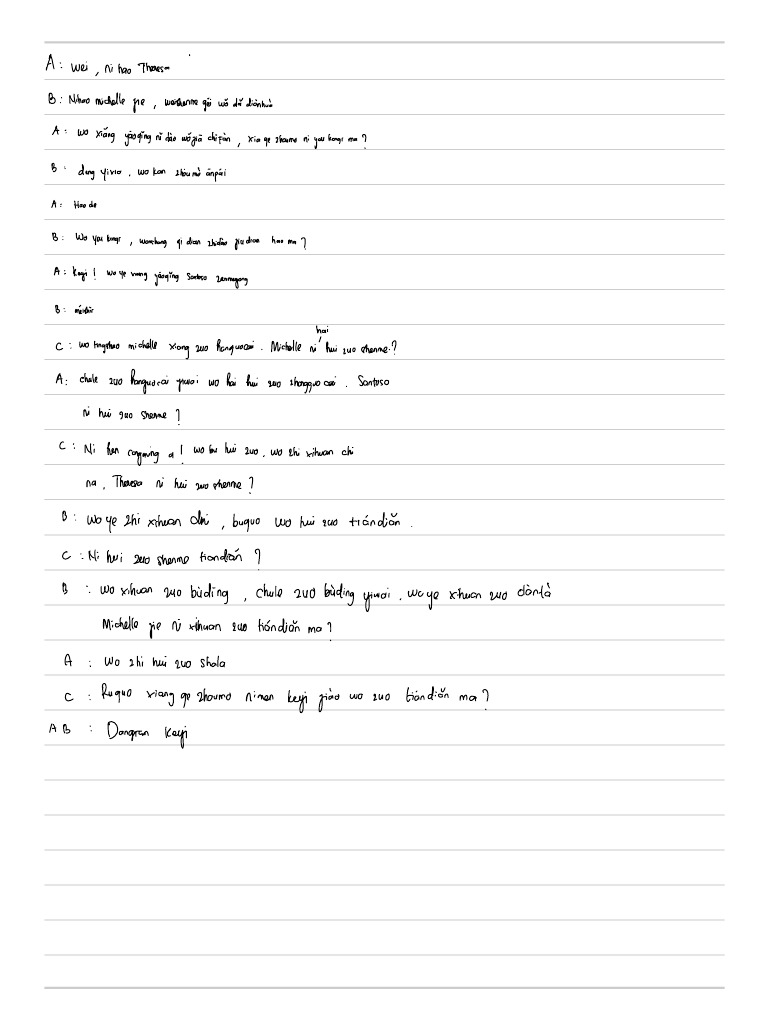 A: Wei, ni hao Theresa
B: Nihao michelle jie, weishenme gěi wǒ dǎ diànhuà
A: wo xiǎng yāoqǐng nǐ dào wǒ jiā chīfàn, xia ge zhoumo ni you kongr ma?
B: deng yixia. wo kan zhōumò ānpái
A: Hao de
B: Wo you kongr, wanshang qi dian zhidào jiu dian hao ma?
A: Keyi! wo ye xiang yāoqǐng Santoso
B:
C: wo tingshuo michelle xiang zuo hanguocai. Michelle ni hai hui zuo shenme?
A: chule zuo hanguocai yiwai wo hai hui zuo zhongguo cai. Santoso
ni hui zuo shenme?
C: Ni hen congming a! wo bu hui zuo, wo zhi xihuan chi
na, Theresa ni hui zuo shenme?
B: wo ye zhi xihuan chi, buguo wo hui zuo tiándiǎn.
C: Ni hui zuo shenme tiandiǎn?
B: wo xihuan zuo bùding, chule zuo bùding yiwai, wo ye xihuan zuo dàntà
Michelle jie ni xihuan zuo tiándiǎn ma?
A: wo zhi hui zuo shala
C: Ruguo xiang ge zhoumo nimen keyi jiào wo zuo tiándiǎn ma?
A B: Dangran keyi